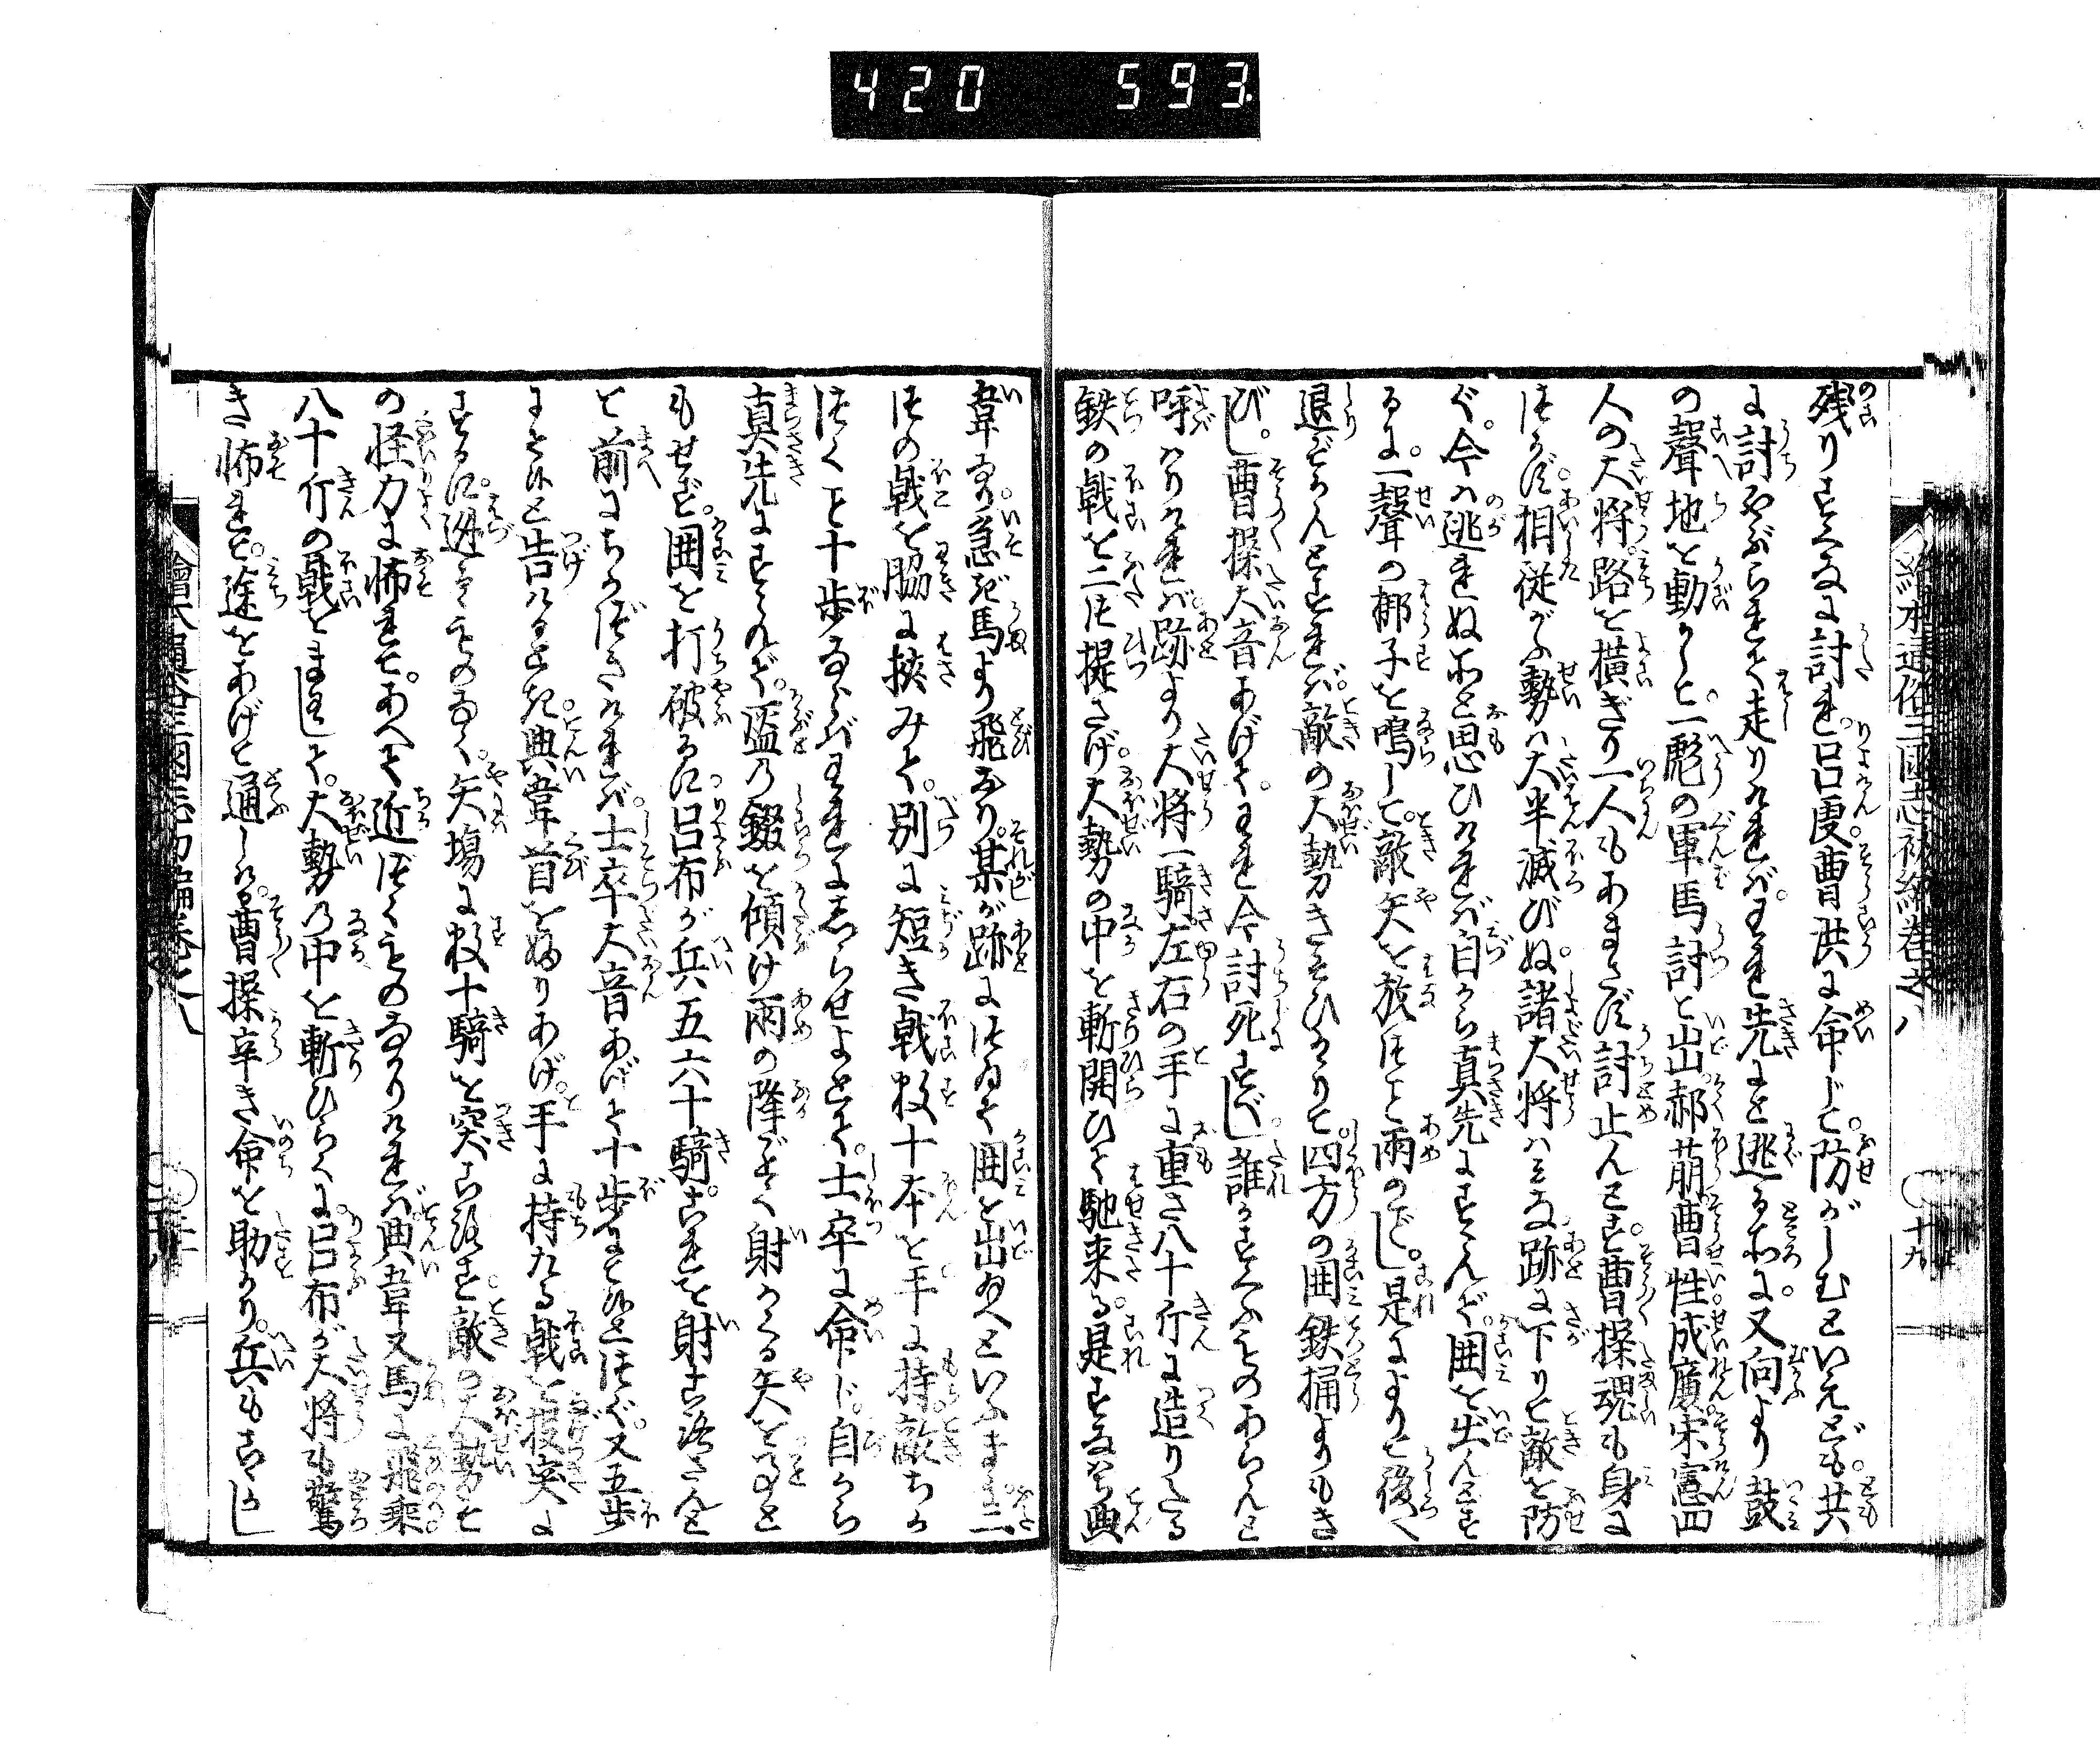 420 593
繪本通俗三國志初編卷之八 ○十九
残りすくなに討れ。呂虔曹洪に命じて。防がしむといえども。共
に討やぶられて走りければ。われ先にと逃る所に。又向より鼓
の聲地を動かし。一彪の軍馬討て出郝萠曹性成廉宋憲四
人の大将路を横ぎり一人もあまさず討止んとす。曹操魂も身に
つかず。相従がふ勢ハ大半滅びぬ。諸大将ハみな跡に下りて敵を防
ぐ。今ハ逃れぬ所と思ひければ自から真先にすゝんで。囲を出んとす
るに。一聲の梆子を鳴して。敵矢を放つこと雨のごとし。是によりて後へ
退ぞかんとすれば。敵の大勢きそひかゝりて。四方の囲鉄桶よりもき
びし。曹操大音あげて。われ今討死すべし。誰かすくふものあらんと
呼ハりければ。跡より大将一騎。左右の手に重さ八十斤に造りたる
鉄の戟を二つ提さげ。大勢の中を斬開ひて馳来る。是すなはち典
韋なり。急ぎ馬より飛おり。某が跡につゐて囲を出給へといふまゝに。二
つの戟を脇に挟みて。別に短き戟数十本を手に持。敵ちか
づくこと十歩ならばわれにしらせよとて。士卒に命じ。自から
真先にすゝんで。盔の錣を傾け雨の降ごとく射かくる矢を事と
もせず。囲を打破るに。呂布が兵五六十騎。これを射ころさんと
て前にちかづきければ。士卒大音あげて十歩にとゞきつく。又五歩
にとゞくと告けるとき。典韋首をふりあげ。手に持たる戟を投突に
するに。逃るものなく。矢塲に数十騎を突ころす。敵の大勢そ
の怪力に怖れて。あへて近づくものなかりければ。典韋又馬に飛乗。
八十斤の戟をまハして。大勢の中を斬ひらくに。呂布が大将も驚
き怖れて。途をあけて通しける。曹操辛き命を助かり。兵もすこし
繪本通俗三國志初編卷之八